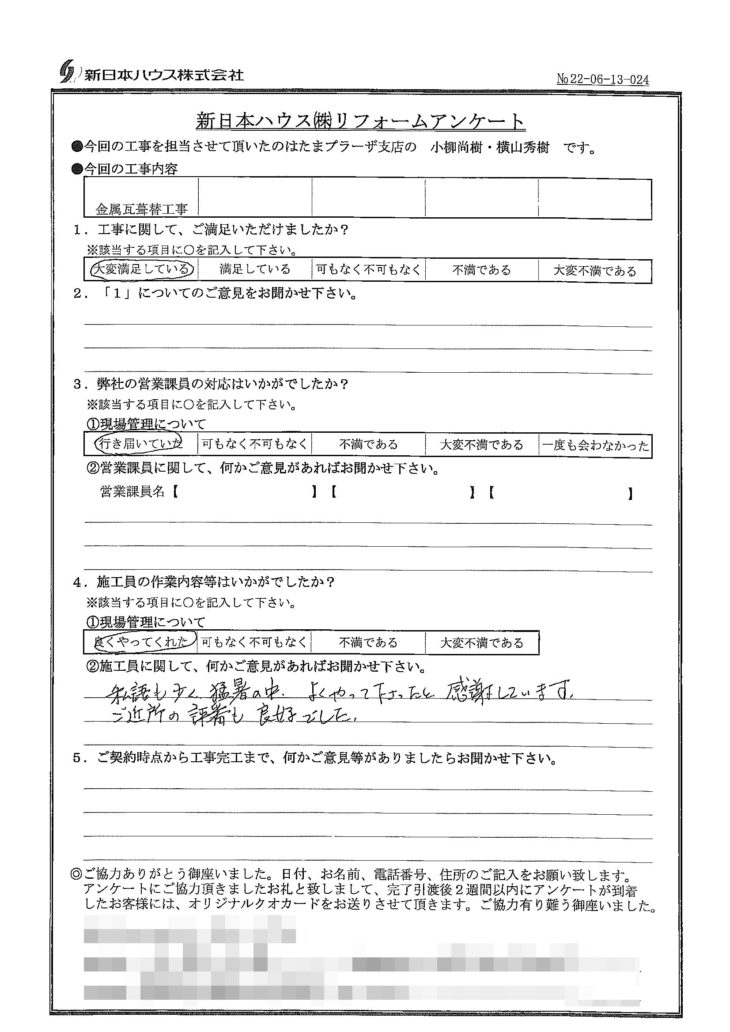 新日本ハウス株式会社
№22-06-13-024
新日本ハウス㈱リフォームアンケート
●今回の工事を担当させて頂いたのはたまプラーザ支店の 小柳尚樹・横山秀樹 です。
●今回の工事内容
金属瓦葺替工事
1．工事に関して、ご満足いただけましたか？
※該当する項目に〇を記入して下さい。
大変満足している 満足している 可もなく不可もなく 不満である 大変不満である
2．「1」についてのご意見をお聞かせ下さい。
3．弊社の営業課員の対応はいかがでしたか？
※該当する項目に〇を記入して下さい。
①現場管理について
行き届いていた 可もなく不可もなく 不満である 大変不満である 一度も会わなかった
②営業課員に関して、何かご意見があればお聞かせ下さい。
営業課員名【 】【 】【 】
4．施工員の作業内容等はいかがでしたか？
※該当する項目に〇を記入して下さい。
①現場管理について
良くやってくれた 可もなく不可もなく 不満である 大変不満である
②施工員に関して、何かご意見があればお聞かせ下さい。
私語も少く 猛暑の中 よくやって下さったと 感謝しています。
ご近所の 評署も 良好でした。
5．ご契約時点から工事完工まで、何かご意見等がありましたらお聞かせ下さい。
◎ご協力ありがとう御座いました。日付、お名前、電話番号、住所のご記入をお願い致します。
アンケートにご協力頂きましたお礼と致しまして、完了引渡後2週間以内にアンケートが到着
したお客様には、オリジナルクオカードをお送りさせて頂きます。ご協力有り難う御座いました。